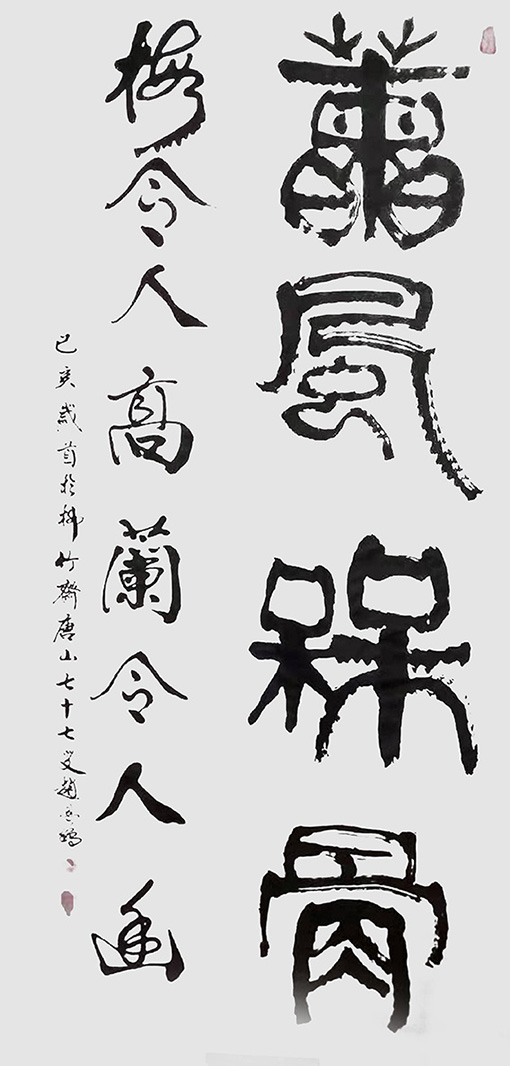 蘭風槑骨
梅令人高蘭令人幽
己亥歲首於竹齋唐山七十七叟趙